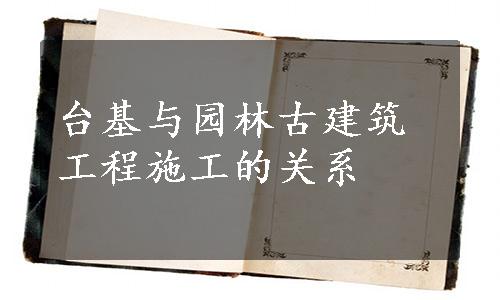 台基与园林古建筑
工程施工的关系